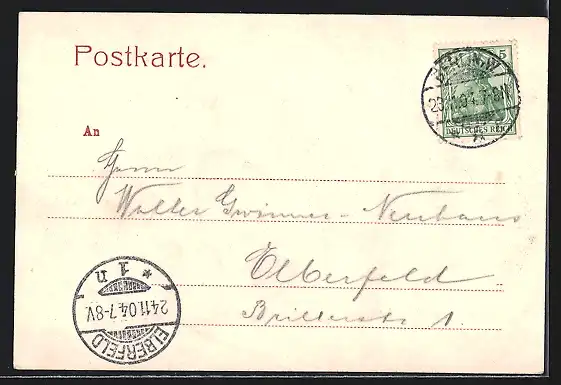 Postkarte.
5
BERLIN.W.
23.11.04.7-8N.
DEUTSCHES REICH
An
Herrn
Walter Gwinner-Neuhaus
Elberfeld
Brillerstr 1.
* 1 n
24.11.04.7-8V.
ELBERFELD